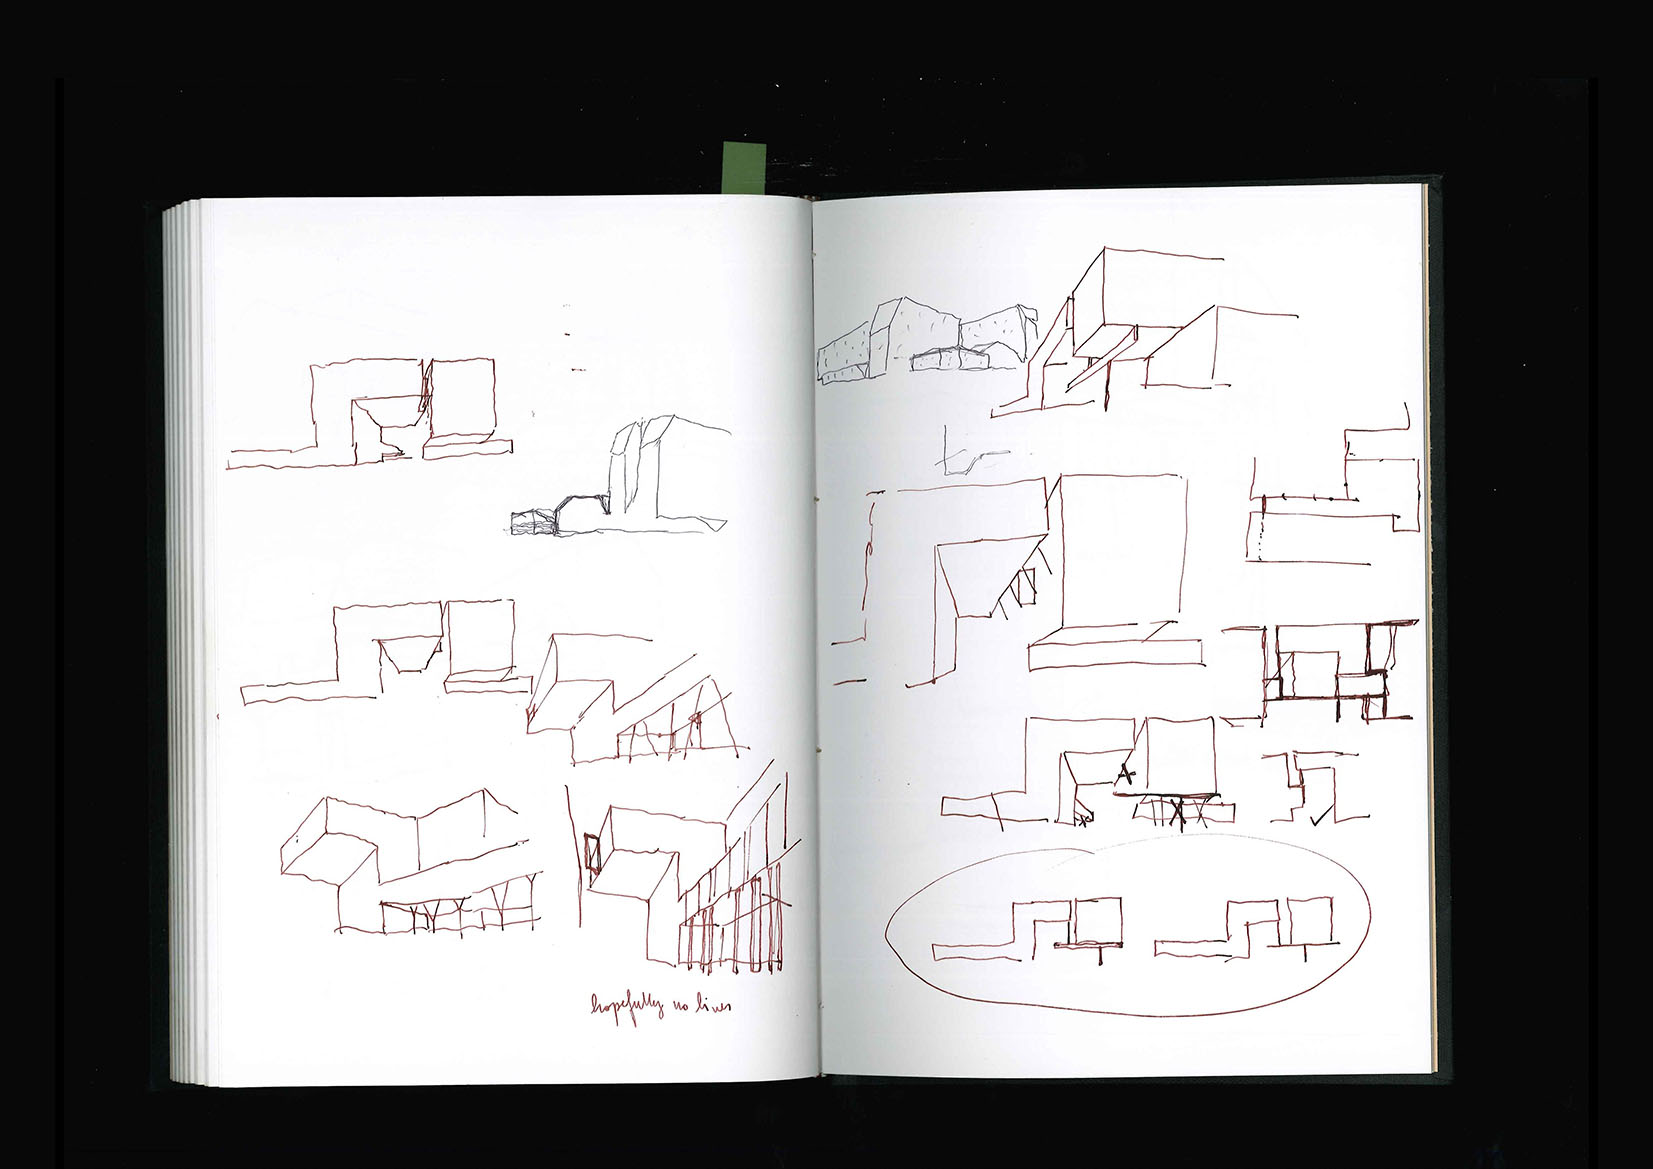 hopefully no lines